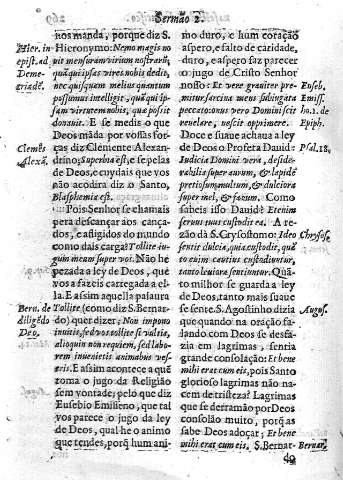 Sermão 2.
nos manda, porque diz S.
Hier. in
Hieronymo: Nemo magis no
epist. ad
vit mensuram virium nostrarũ,
Deme-
quã qui ipsas vires nobis dedit,
triadē.
nec quisquam melius quantum
possumus intelligit, quã qui ip-
sam virtutem nobis, que possit
donavit. E se medis o que
Deos mãda por vossas for-
Clemēs
ças diz Clemente Alexan-
Alexã.
drino; Superbia est, e se pelas
de Deos, e cuydais que vos
não acodira diz o Santo,
Blasphemia est.
Pois Senhor se chamais
pera descançar aos cança-
dos, e affligidos do mundo
como dais carga? Tollite iu-
gum meum super vos. Não he
pezada a ley de Deos, que
vos a fazeis carregada a el-
la. E assim aquella palaura
Bern. de
Tollite (como diz S. Bernar-
diligēdo
do) quer dizer; Non impono
Deo.
invitis, sed vos tollite si vultis,
alioquin non requiem, sed labo-
rem invenietis animabus ves-
tris. E assim acontece a quē
toma o jugo da Religião
sem vontade; pelo que diz
Eusebio Emisseno, que tal
vos parece o jugo da ley
de Deos, qual he o animo
que tendes, porq̃ hum ani-
mo duro, e hum coração
aspero, e falto de caridade,
duro, e aspero faz parecer
o jugo de Cristo Senhor
nosso: Et vere graviter pre-
Euseb.
mitur, sarcina mens subiugata
Emiss.
peccato cum vero Dominus scit
ho. 2. de
revelare, noscit opprimere.
Epiph.
Doce e suave achaua a ley
de Deos o Profeta Dauid:
Psal. 18.
Iudicia Domini vera, deside-
rabilia super aurum, & lapidē
pretiosum multum, & dulciora
super mel, & favum. Como
sabeis isso Dauid? Etenim
servus tuus custodit ea. A re-
zão dà S. Grysostomo: Ideo
Chrysos.
sentit dulcia, quia custodit, quã
to enim cautius custodiuntur,
tanto leuiora sentiuntur. Quã-
to milhor se guarda a ley
de Deos, tanto mais suaue
se sente. S. Agostinho dizia
Augus.
que quando na oração fa-
lando com Deos se desfa-
zia em lagrimas, sentia
grande consolação: Et bene
mihi erat cum eis, pois Santo
glorioso lagrimas não na-
cem de tristeza? Lagrimas
que se derramão por Deos
consolão muito, porq̃ as
sabe Deos adoçar; Et bene
mihi erat cum eis. S. Bernar-
Bernar.
do